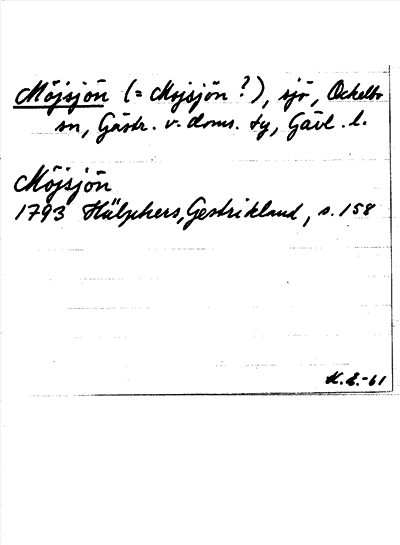 Möjsjön (= Mojsjön ?), sjö, Ockelbo
sn, Gästr. v. doms. ty, Gävl. l.
Möjsjön
1793 Hülphers, Gestrikland, s. 158
K.E.-61